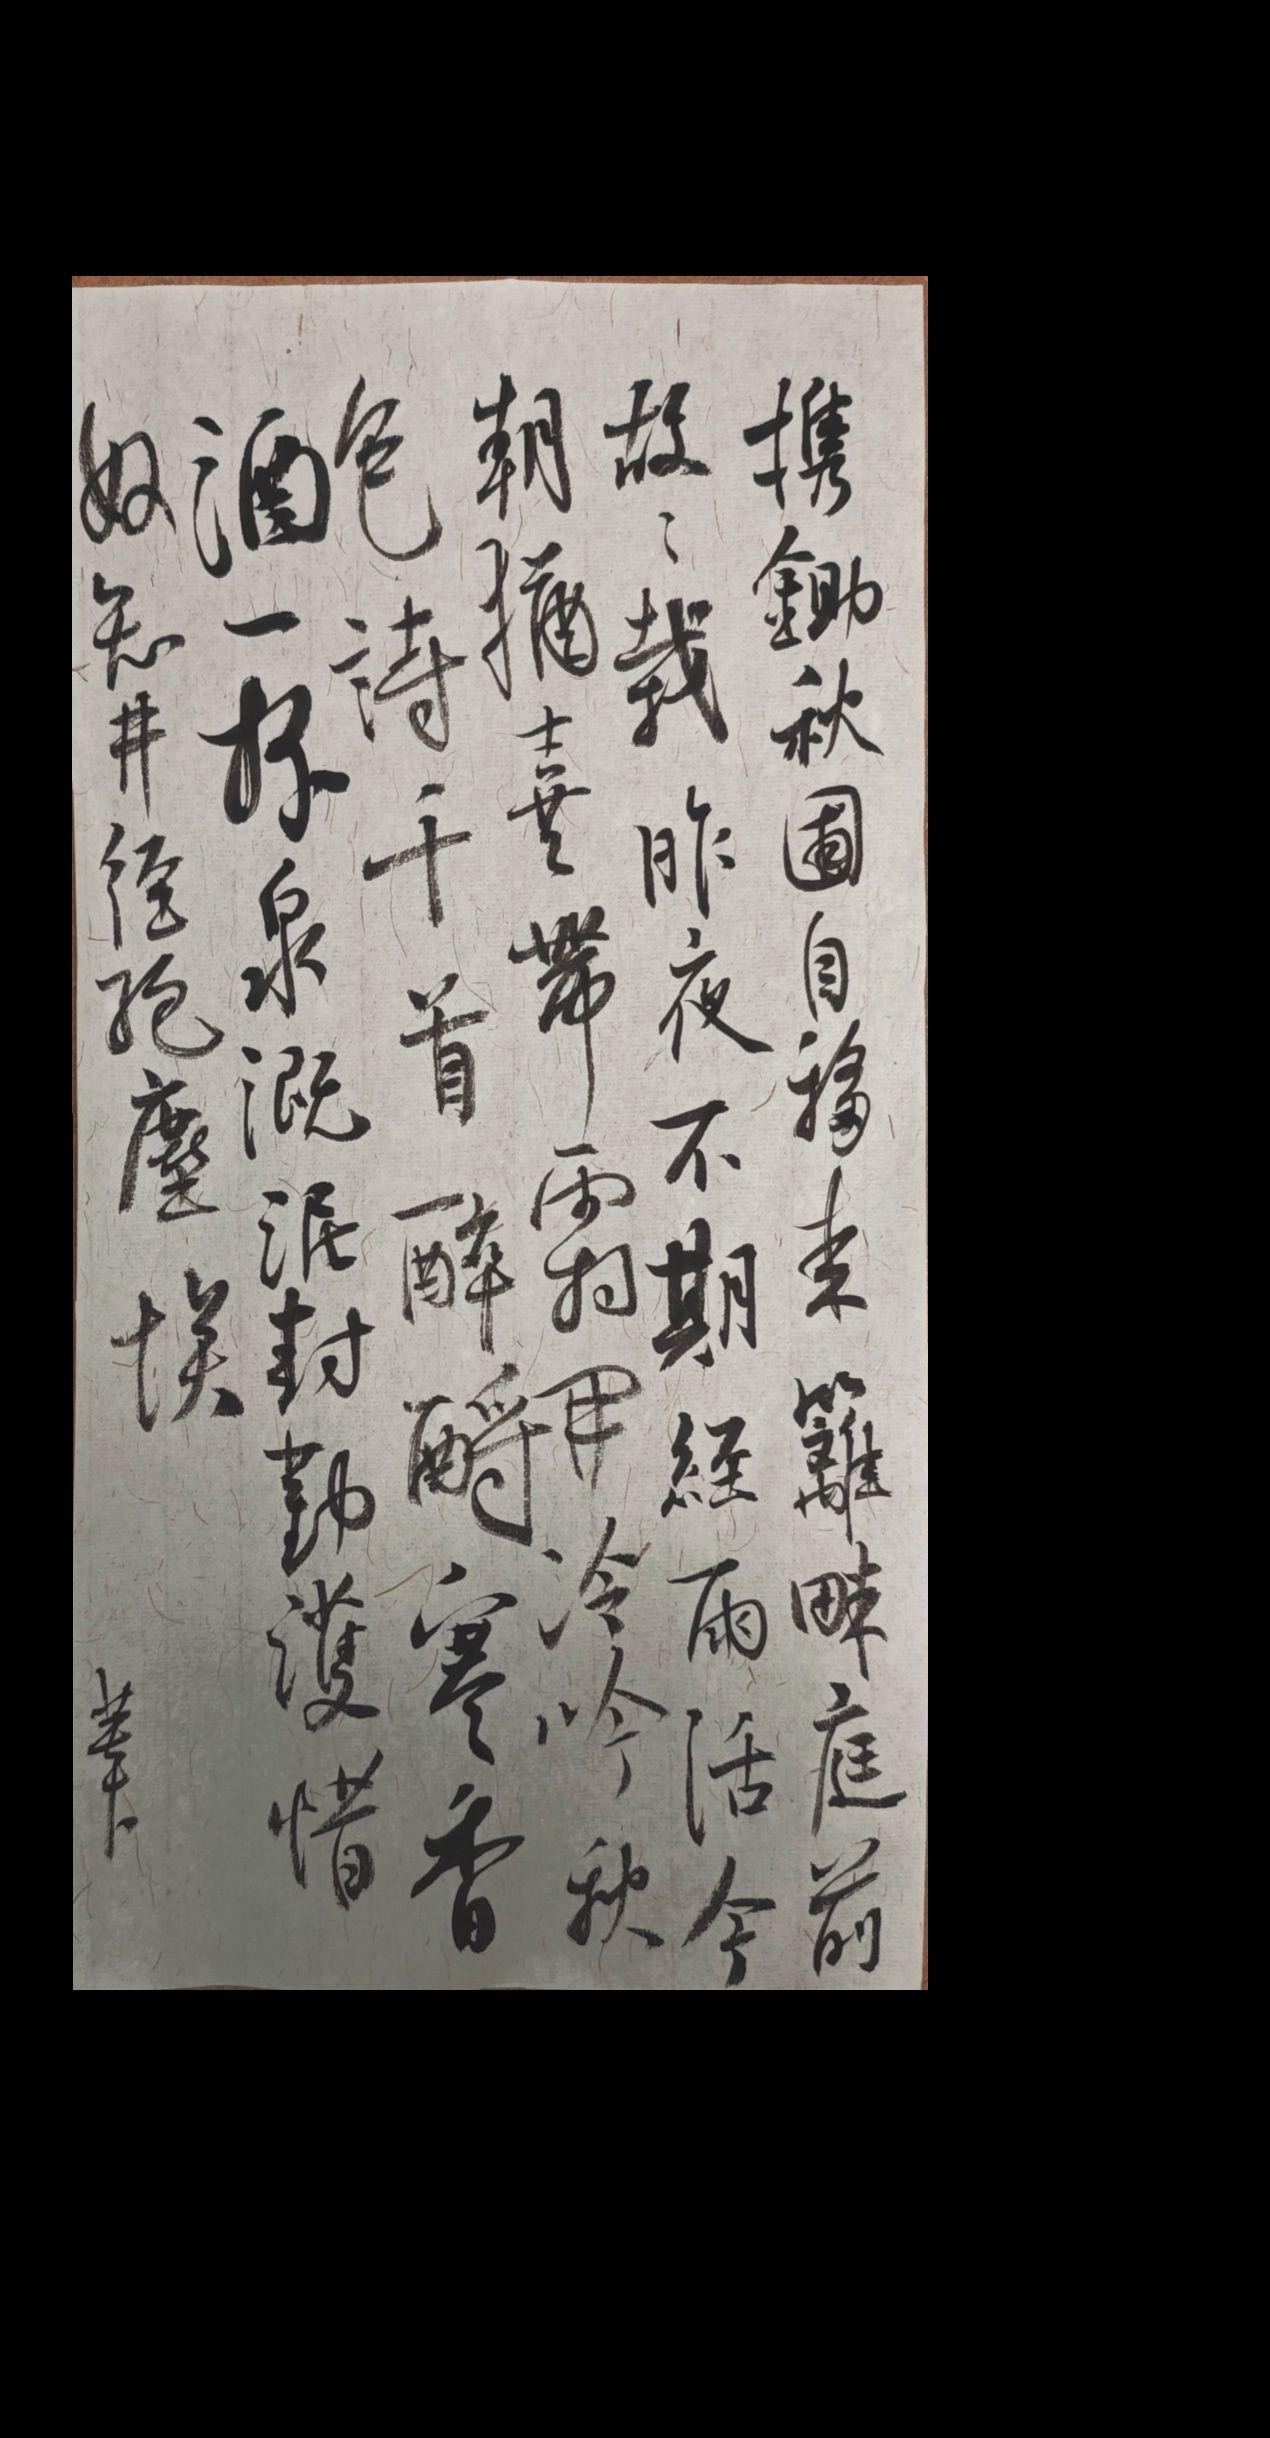 携鋤秋圃自移来籬畔庭前
故々栽昨夜不期經雨活今
朝猶喜帶霜開冷吟秋
色詩千首醉酹寒香
酒一杯泉溉泥封勤護惜
好知井徑絶塵埃